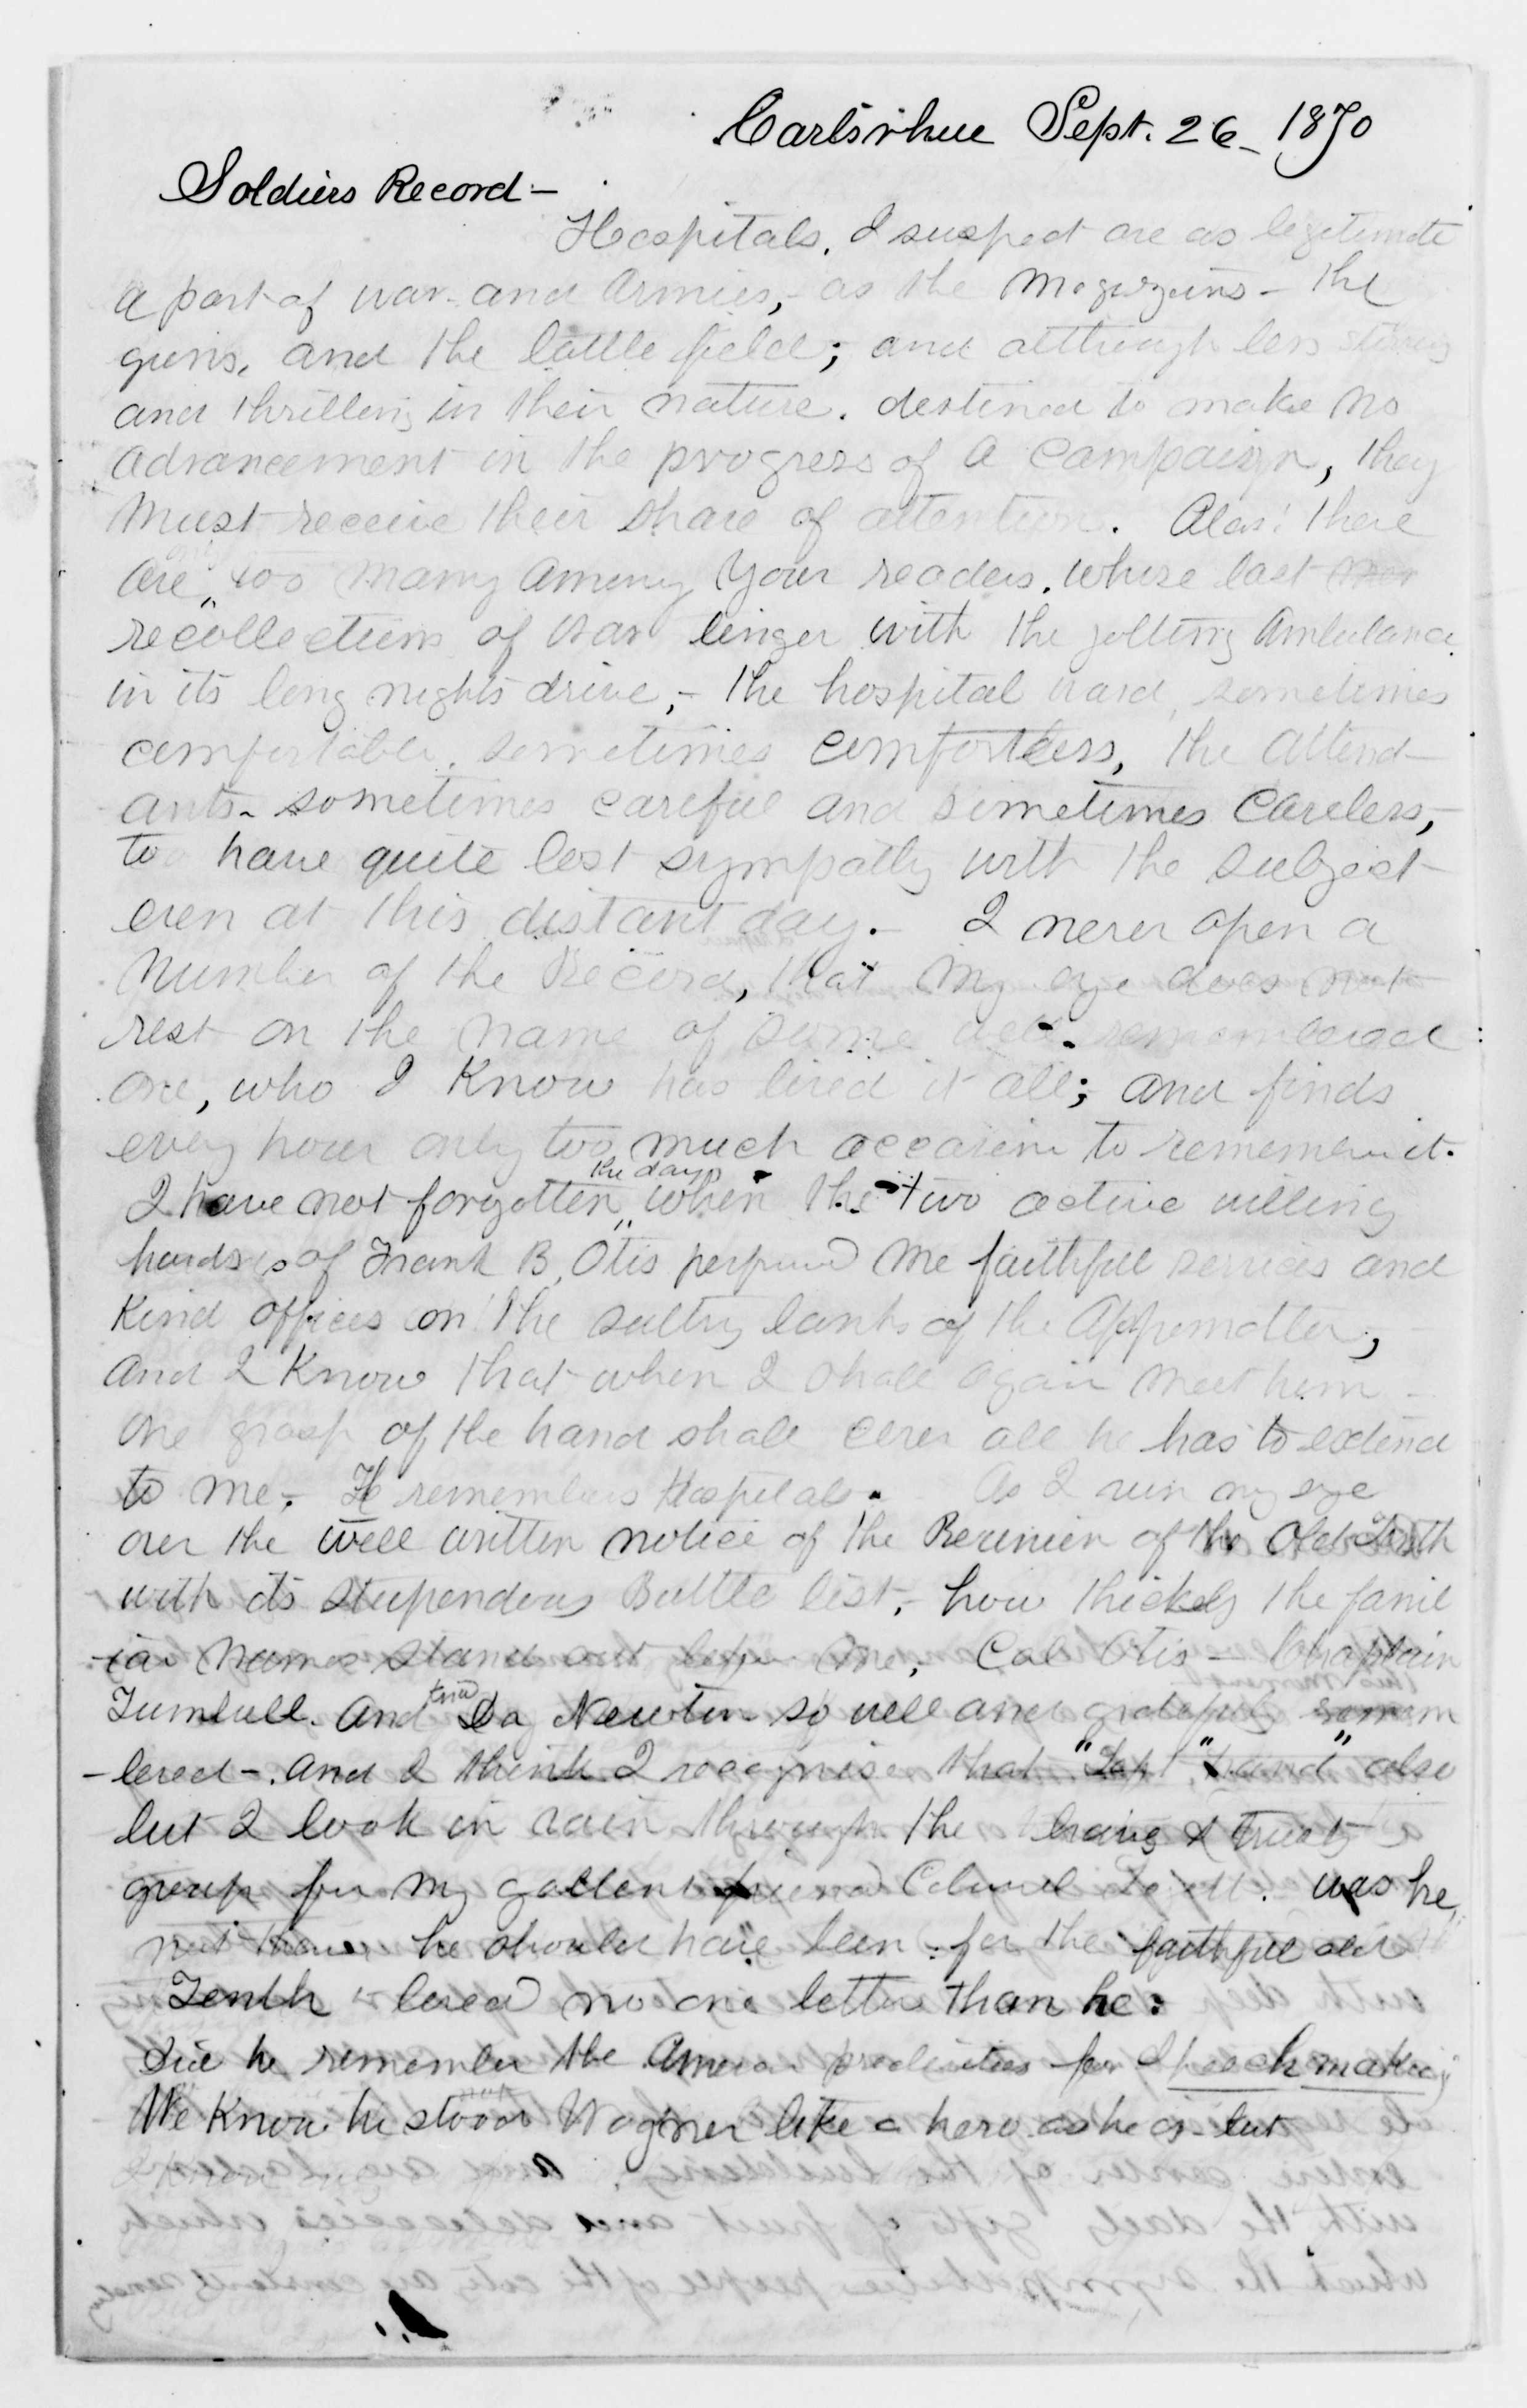 Carlsrhue Sept. 26 - 1870
Soldiers Record -
Hospitals, I suspect are as legitimate
a part of war and Armies, - as the Magazines - the
guns, and the battle field; and although less stirring
and thrilling in their nature. destined to make no
advancement in the progress of a campaign, they
must receive their share of attention. Alas! there
are too many among your readers, whose last
recollections of war linger with the jolting ambulance
in its long nights drive, - the hospital ward, sometimes
comfortable, sometimes comfortless, the attend-
ants - sometimes careful and sometimes careless,
to have quite lost sympathy with the subject
even at this distant day. - I never open a
number of the Record, that my eye does not
rest on the name of some well remembered
one, who I know has lived it all; and finds
every hour only too much occasion to remember it.
I have not forgotten the days when the two active willing
hands of Frank B. Otis performed me faithful services and
kind offices on the sultry banks of the Appomattox,
and I know that when I shall again meet him -
one grasp of the hand shall cover all he has to extend
to me, - He remembers Hospitals. As I run my eye
over the well written notice of the Reunion of the Old Tenth
with its stupendous Battle list, - how thickly the famil
-iar names stand out before me, - Col Otis - Chaplain
Trumbull. and Newton so well and gratefully remem
-bered -. and I think I recognise that "Left" "hand" also
but I look in vain through the brave & trusty
group for my gallant friend Colonel was he
not there, he should have been - for the faithful old
Tenth loved no one better than he:
Did he remember the American proclivities for Speech making
We know he stood Wagner like a hero as he is - but